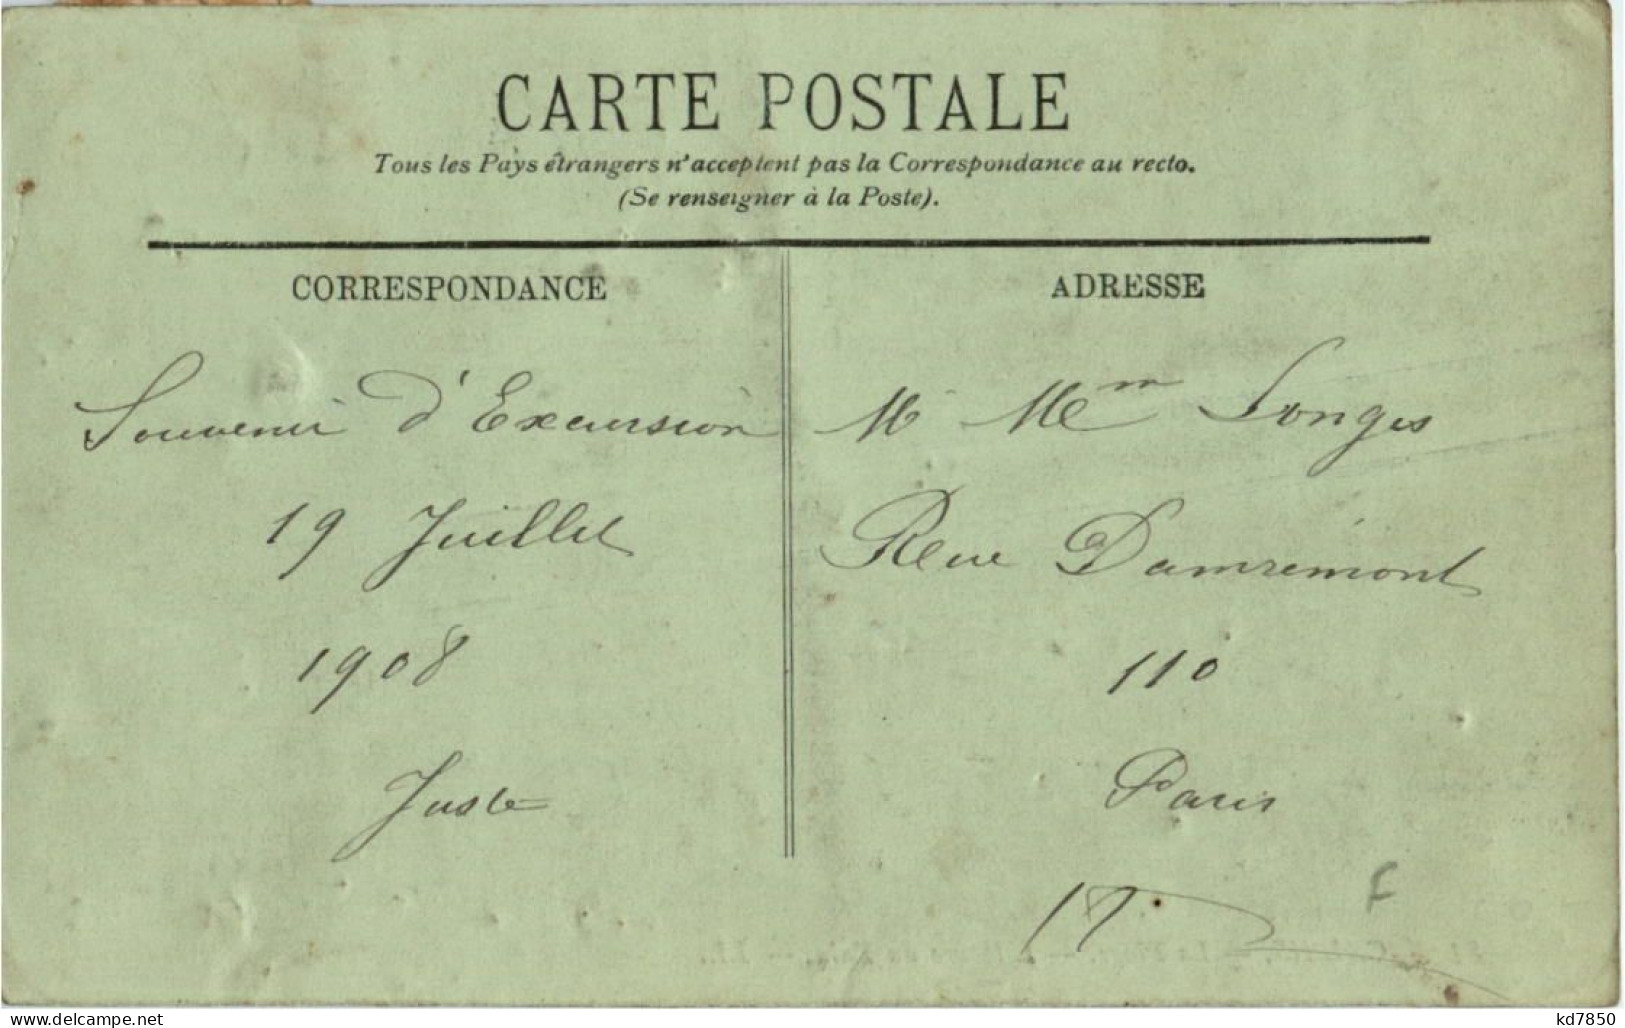 CARTE POSTALE
Tous les Pays étrangers n'acceptent pas la Correspondance au recto.
(Se renseigner à la Poste).
CORRESPONDANCE
Souvenir d'Excursion
19 Juillet
1908
Juste
ADRESSE
M Mem Songes
Rue Damremont
110
Paris
F
www.delcampe.net
kd7850